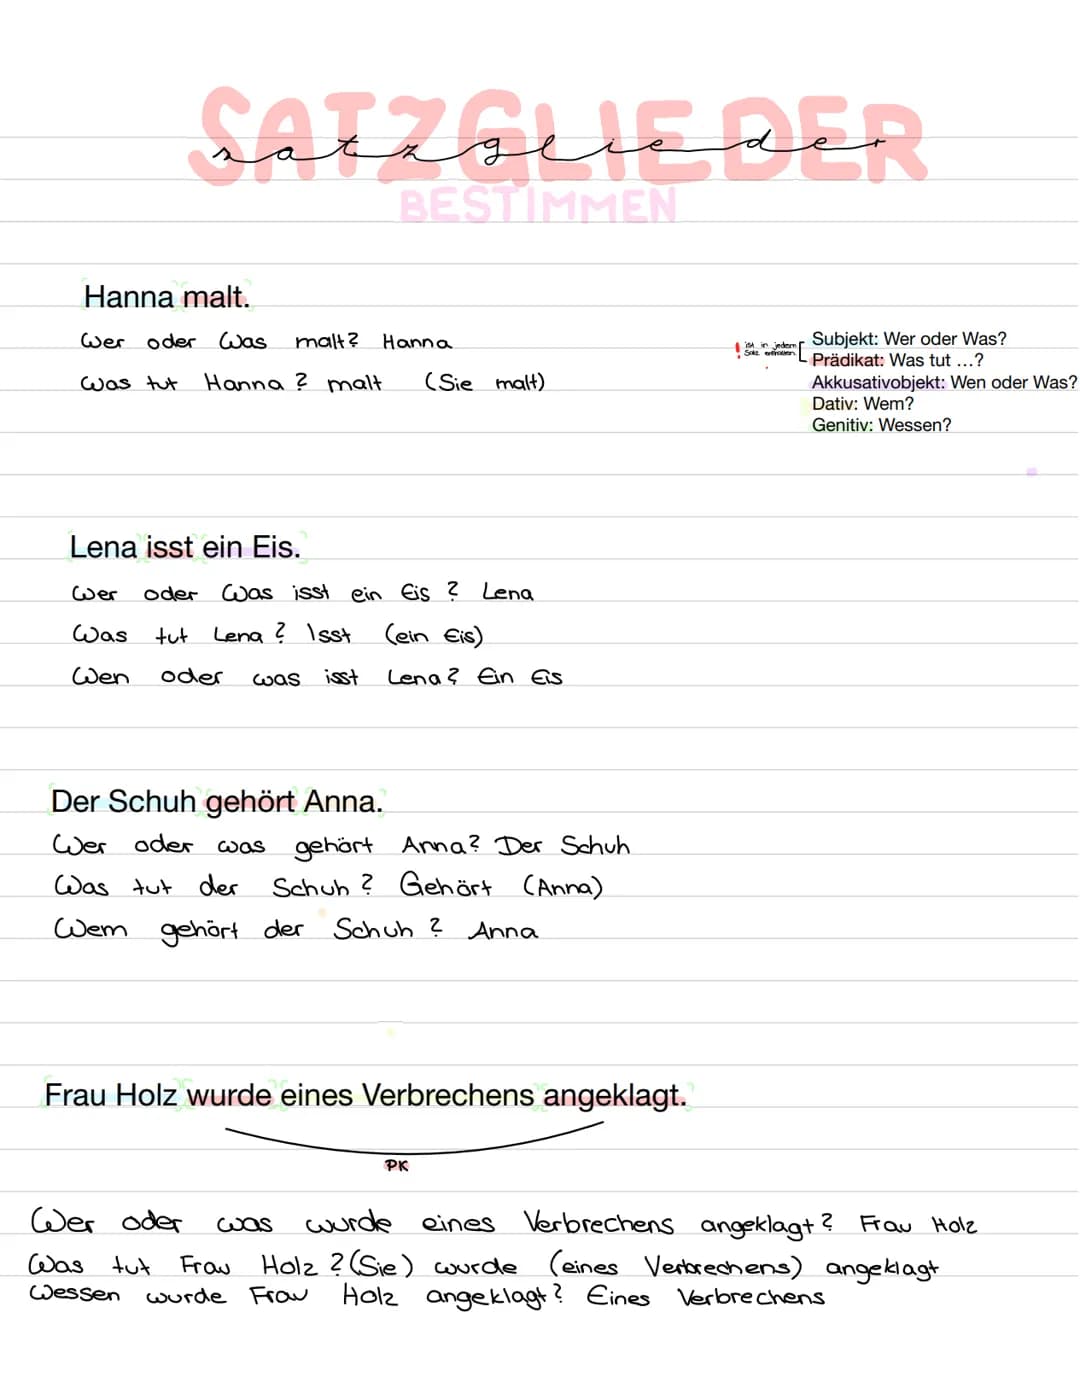 SATZGLIEDER
satzglieder
BESTIMMEN
Hanna malt.
Wer oder Was malt? Hanna
Was tut Hanna? malt (Sie malt)
! ist in jedem Satz enthalten.
Subjekt: Wer oder Was?
Prädikat: Was tut ...?
Akkusativobjekt: Wen oder Was?
Dativ: Wem?
Genitiv: Wessen?
Lena isst ein Eis.
Wer oder Was isst ein Eis? Lena
Was tut Lena? Isst (ein Eis)
Wen oder was isst Lena? Ein Eis
Der Schuh gehört Anna.
Wer oder was gehört Anna? Der Schuh
Was tut der Schuh? Gehört (Anna)
Wem gehört der Schuh? Anna
Frau Holz wurde eines Verbrechens angeklagt.
PK
Wer oder was wurde eines Verbrechens angeklagt? Frau Holz
Was tut Frau Holz? (Sie) wurde (eines Verbrechens) angeklagt
Wessen wurde Frau Holz angeklagt? Eines Verbrechens